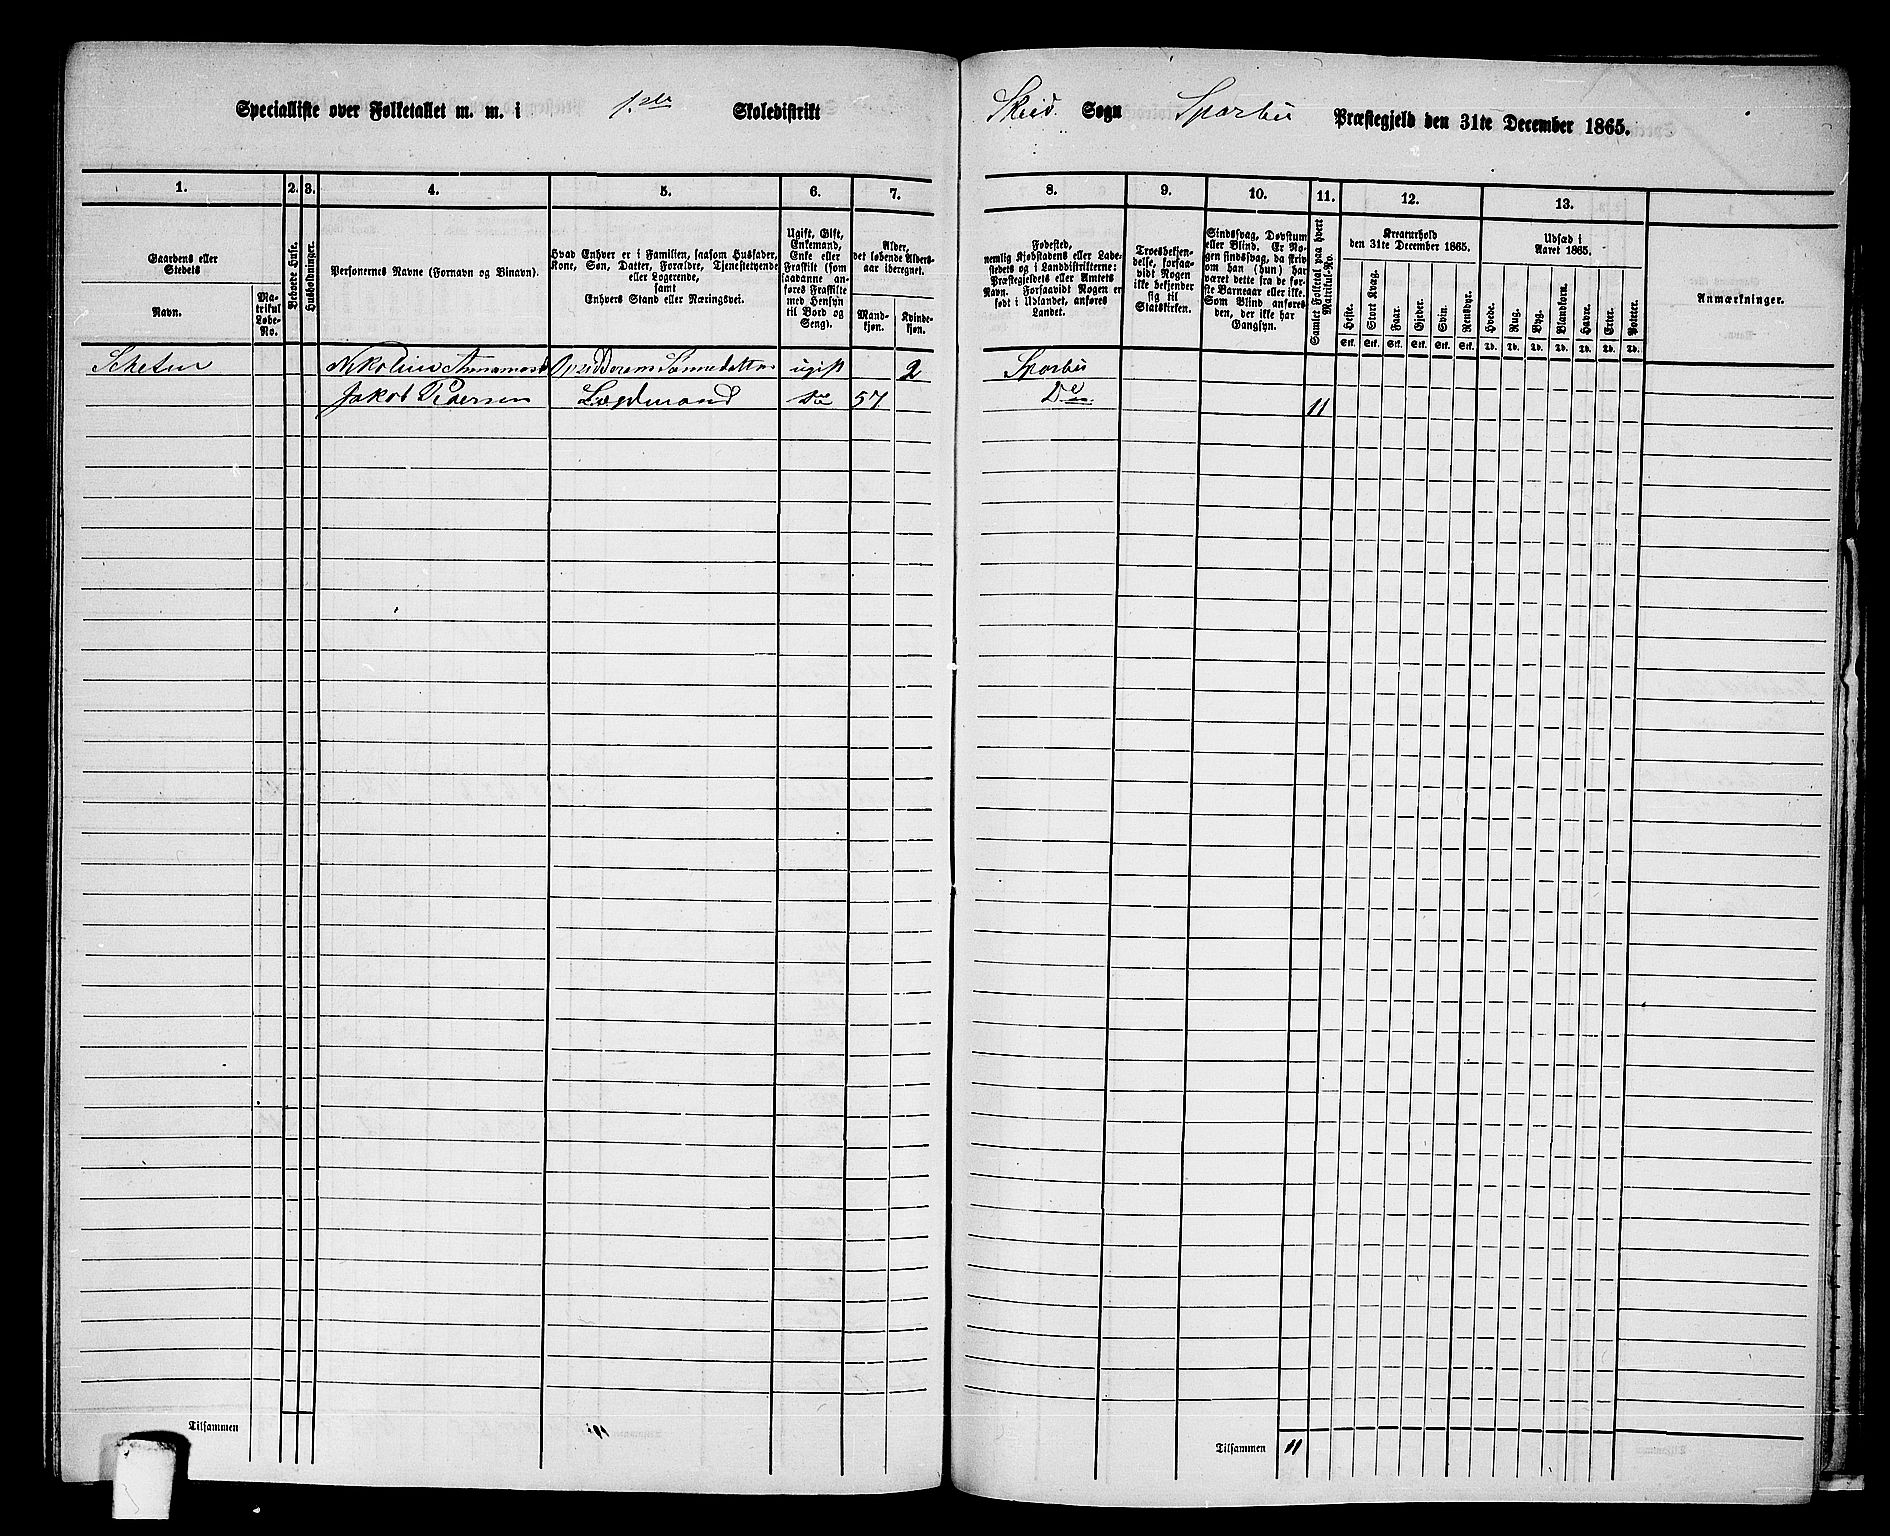 Specialliste over Folketallet m. m. i 1ste Skoledistrikt Skeid Sogn Sparbu Præstegjeld den 31te December 1865.
1. 2. 3. 4. 5. 6. 7. 8. 9. 10. 11. 12. 13.
Gaardens eller Stedets
Navn.
Matrikul Løbe-No.
Beboede Huse.
Husholdninger.
Personernes Navne (Fornavn og Binavn).
Hvad Enhver er i Familien, saasom Husfader, Kone, Søn, Datter, Forældre, Tjenestetyende eller Logerende, samt Enhvers Stand eller Næringsvei.
Ugift, Gift, Enkemand, Enke eller Fraskilt (som saadanne anføres Fraskilte med Hensyn til Bord og Seng).
Alder, det løbende Alders-aar iberegnet.
Mandkjøn.
Kvindekjøn.
Fødested, nemlig Kjøbstadens eller Ladestedets og i Landdistrikterne: Præstegjeldets eller Amtets Navn. Forsaavidt Nogen er født i Udlandet, anføres Landet.
Troesbekjendelse, forsaavidt Nogen ikke bekjender sig til Statskirken.
Sindssvag, Døvstum eller Blind. Er Nogen sindssvag, da skrives om han (hun) har været dette fra de første Barneaar eller ikke. Som Blind anføres den, der ikke har Gangsyn.
Samlet Folketal paa hvert Matrikul-No.
Kreaturhold den 31te December 1865.
Heste. Stort Kvæg. Faar. Gjeder. Svin. Rensdyr.
Stk. Stk. Stk. Stk. Stk. Stk.
Udsæd i Aaret 1865.
Hvede. Rug. Byg. Blandkorn. Havre. Erter. Poteter.
Td. Td. Td. Td. Td. Td. Td.
Anmærkninger.
ugift 2 Sparbu
Jakob Pedersen Lægdmand Do 57 Do 11
Tilsammen
Tilsammen 11